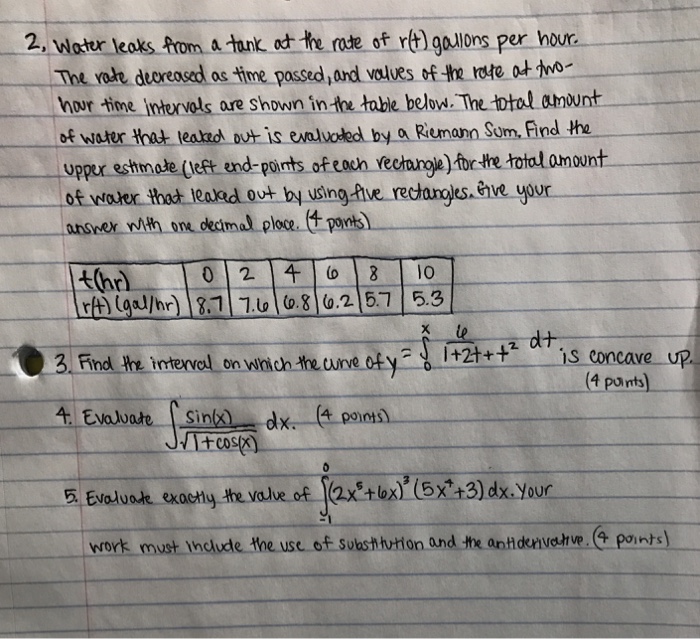 2, Water leaks from a tank at the rate of r(t) gallons per hour.
The rate decreased as time passed, and values of the rate at two-
hour time intervals are shown in the table below. The total amount
of water that leaked out is evaluated by a Riemann Sum. Find the
upper estimate (left end-points of each rectangle) for the total amount
of water that leaked out by using five rectangles. Give your
answer with one decimal place. (4 points)
t(hr) 0 2 4 6 8 10
r(t) (gal/hr) 8.7 7.6 6.8 6.2 5.7 5.3
3. Find the interval on which the curve of y = ∫₀ˣ 6/(1+2t+t²) dt is concave up.
(4 points)
4. Evaluate ∫ sin(x)/√(1+cos(x)) dx. (4 points)
5. Evaluate exactly the value of ∫₋₁⁰ (2x⁵+6x)³ (5x⁴+3) dx. Your
work must include the use of substitution and the antiderivative. (4 points)